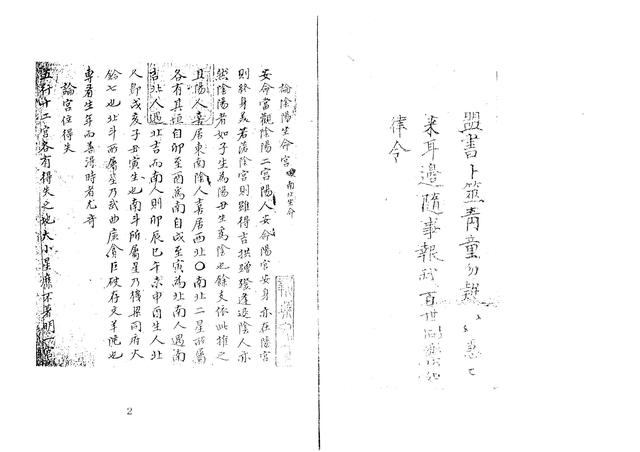 盟書卜筮青童
來耳邊隨事報 百世
律令
論陰陽生命宮 南北生命
安命當觀陰陽二宮陽人安命陽宮安身亦在陽宮
則終身美若落陰宮則雖得吉拱蹭蹬逢逆陰人亦
然陰陽者如子生為陽丑生為陰也餘支依此推之
且陽人喜居東南陰人喜居西北〇南北二星所屬
各有其垣自卯至酉為南自戌至寅為北南人遇南
吉北人遇北吉而南人則卯辰巳午未申酉生人北
人即戌亥子丑寅生也南斗所屬星乃機梁同府大
鈴七也北斗所屬星乃武曲廉貪巨破存文羊陀也
專看生年而喜得時者尤奇
論宮位得失
五行十二宮各有得失之地大小星 不著明 宮
2